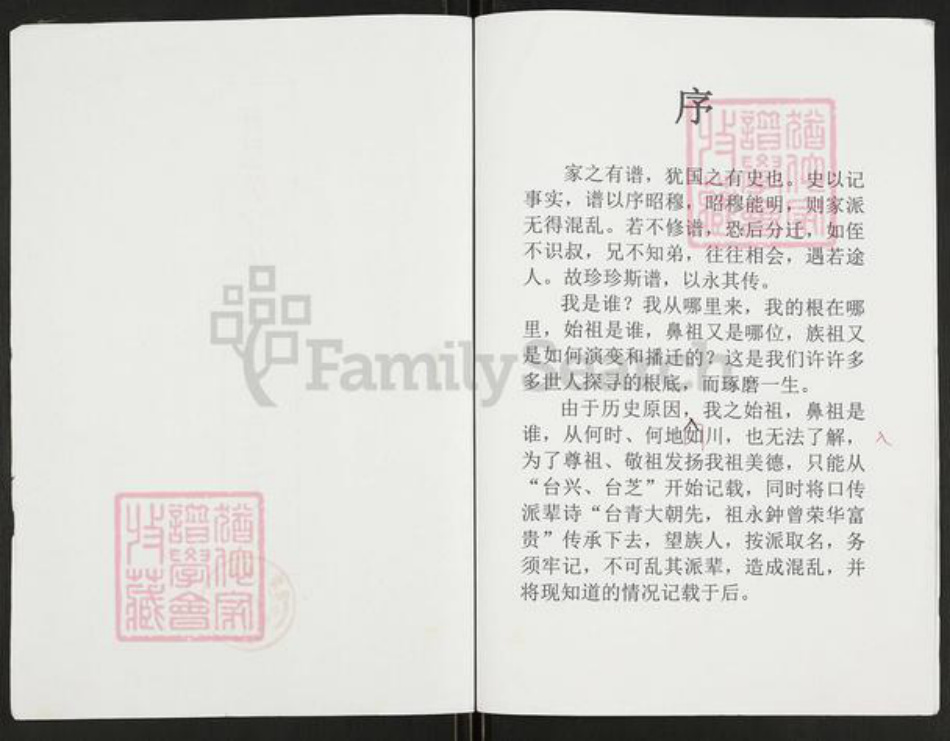 序
家之有谱，犹国之有史也。史以记
事实，谱以序昭穆，昭穆能明，则家派
无得混乱。若不修谱，恐后分迁，如侄
不识叔，兄不知弟，往往相会，遇若途
人。故珍珍斯谱，以永其传。
我是谁？我从哪里来，我的根在哪
里，始祖是谁，鼻祖又是哪位，族祖又
是如何演变和播迁的？这是我们许许多
多世人探寻的根底，而琢磨一生。
由于历史原因，我之始祖，鼻祖是
谁，从何时、何地如川，也无法了解，
入
为了尊祖、敬祖发扬我祖美德，只能从
“台兴、台芝”开始记载，同时将口传
派辈诗“台青大朝先，祖永鈡曾荣华富
贵”传承下去，望族人，按派取名，务
须牢记，不可乱其派辈，造成混乱，并
将现知道的情况记载于后。
FamilySearch